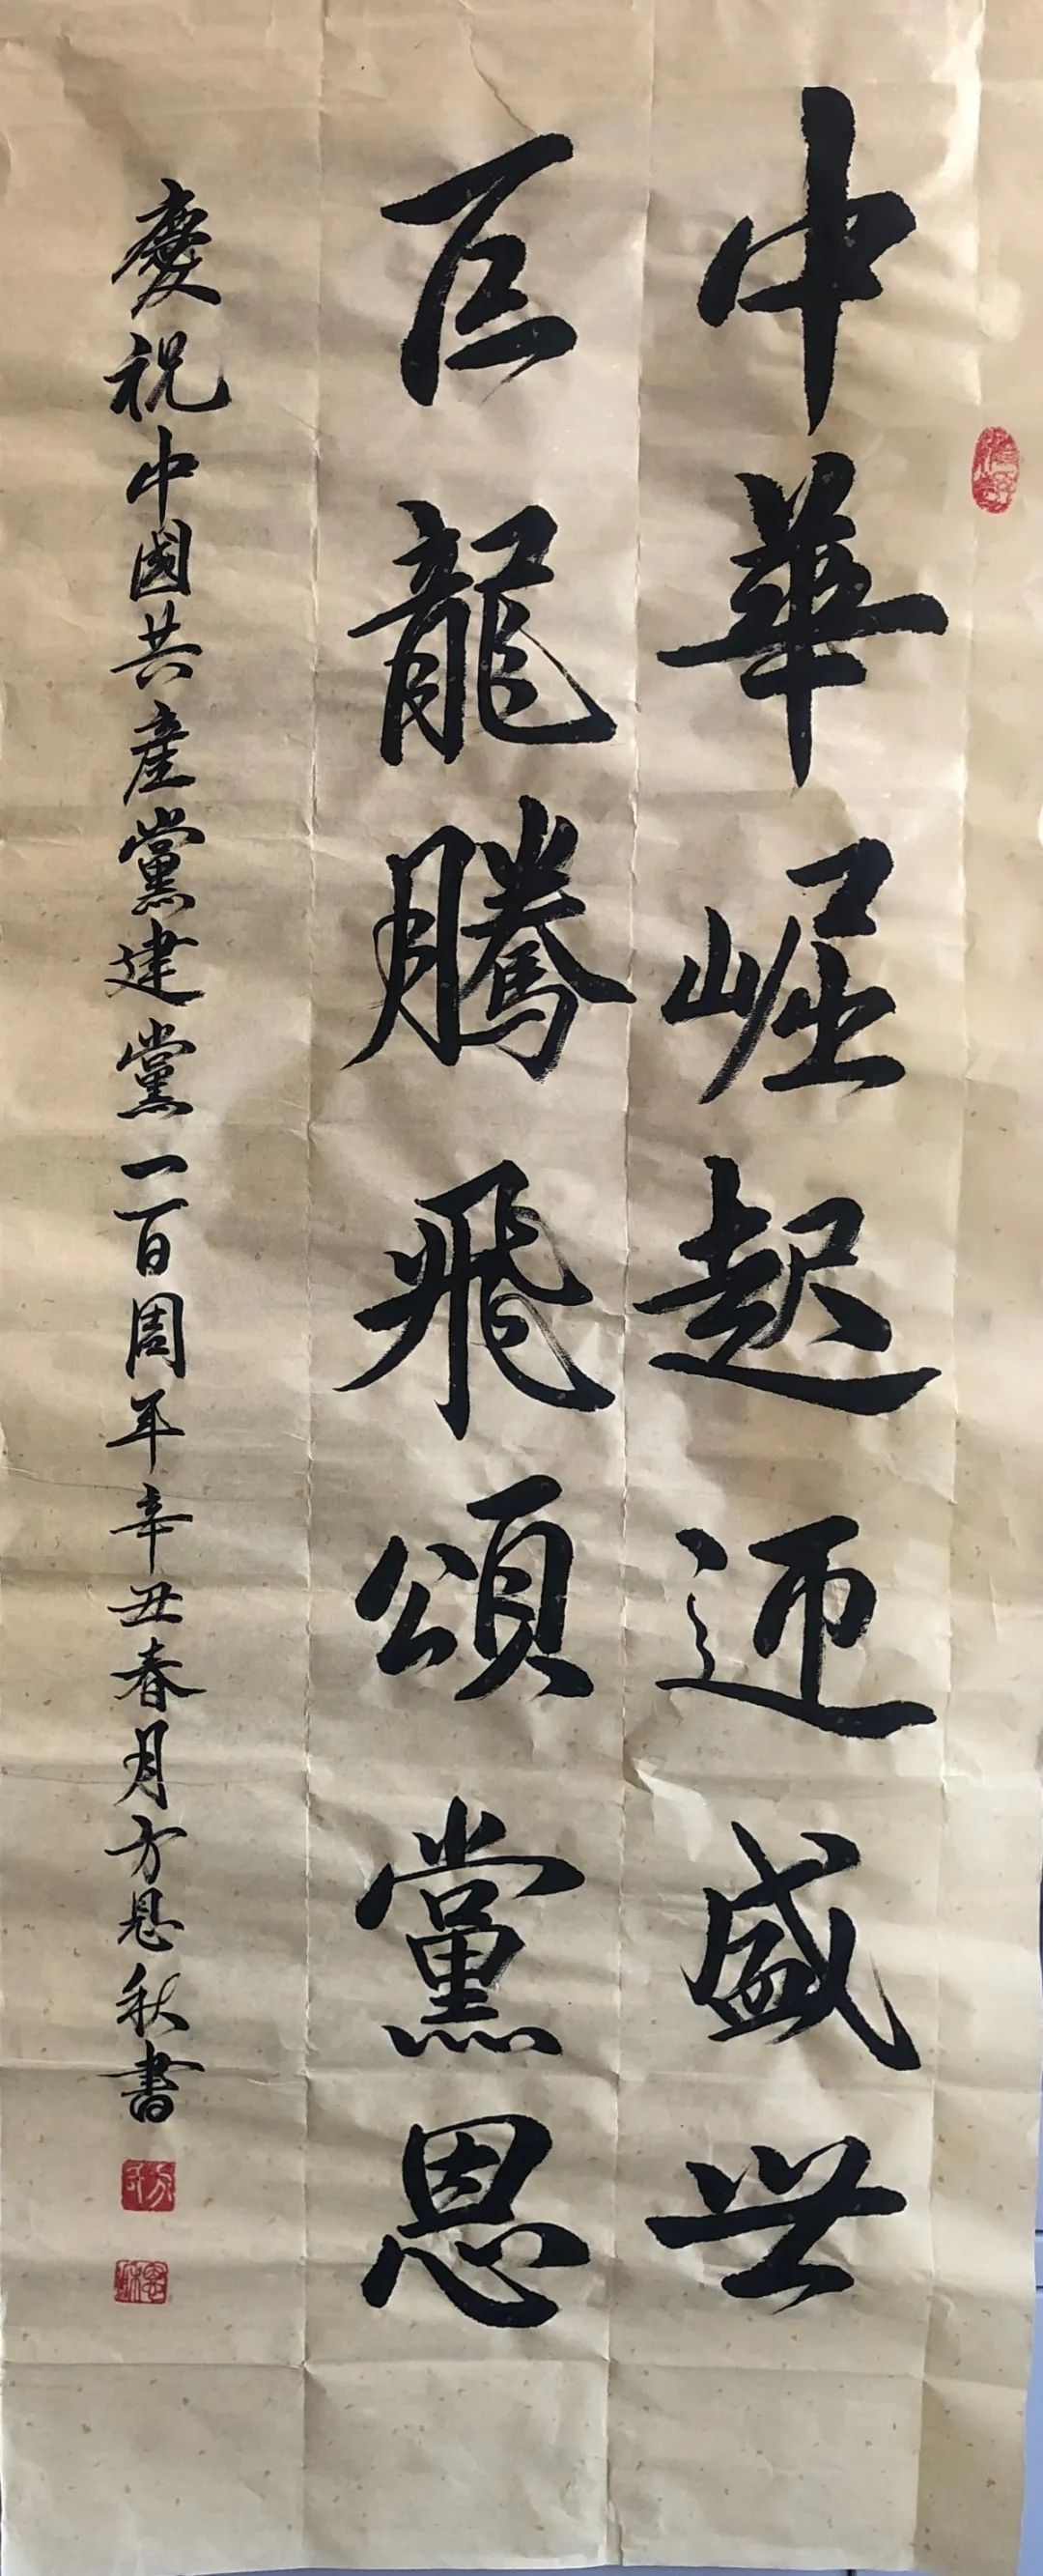 中華崛起迎盛世
巨龍騰飛頌黨恩
慶祝中國共產黨建黨一百周年辛丑春月方恩秋書